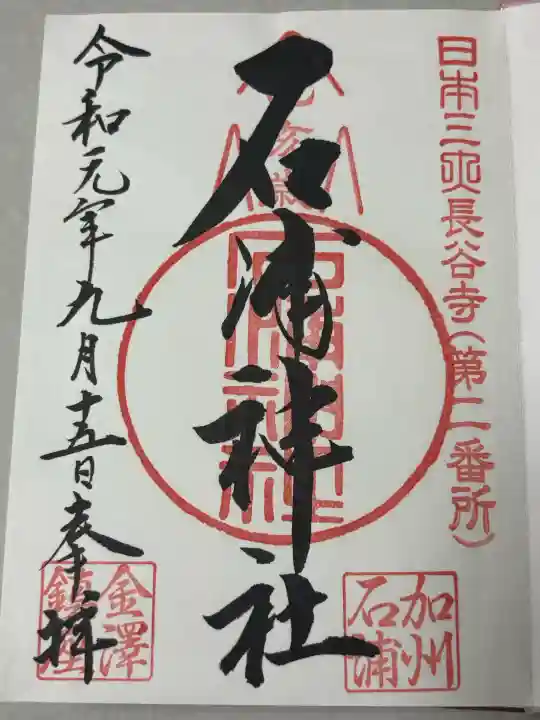 日本三大長谷寺(第二番所)
加州
石浦
石浦神社
令和元年九月十五日奉拝
金澤
鎮座